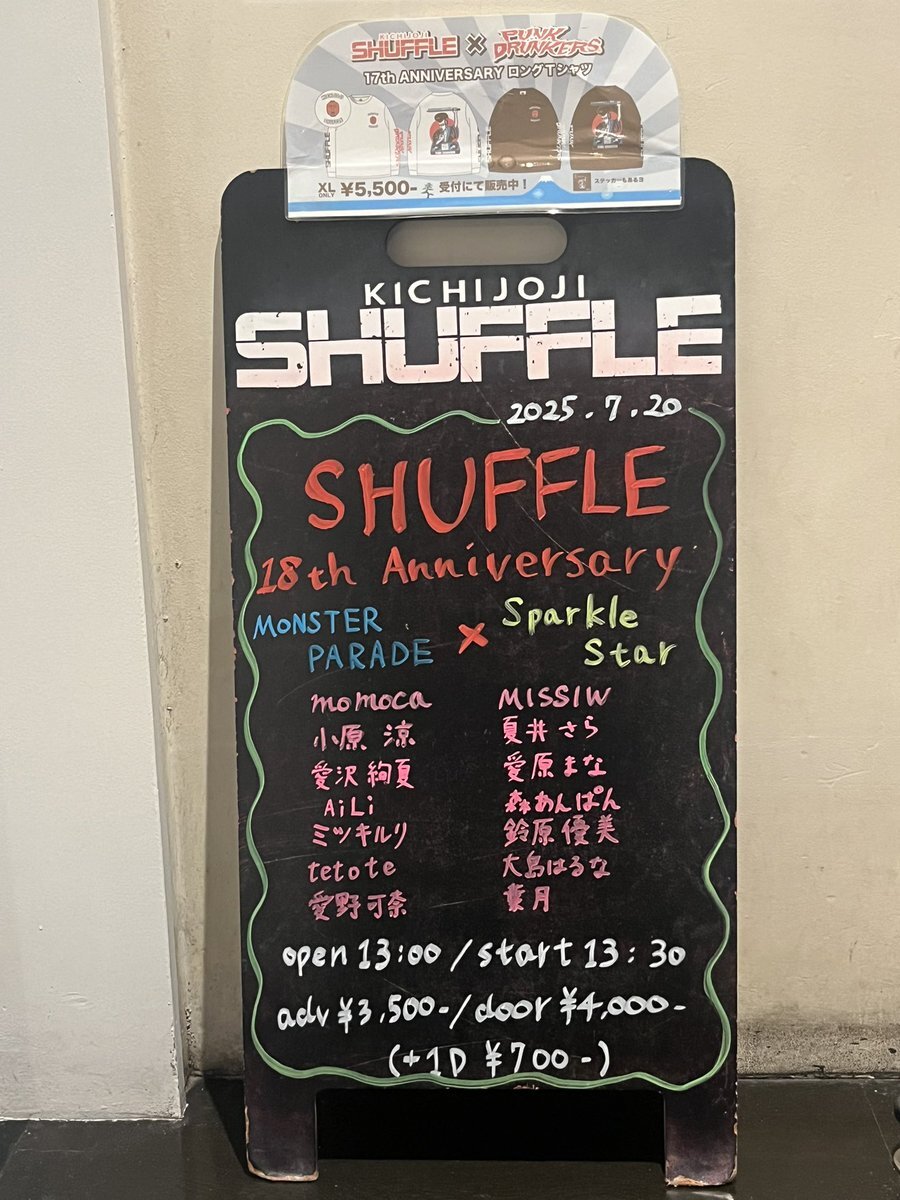 KICHIJOJI
SHUFFLE × PUNK DRUNKERS
17th ANNIVERSARY ロングTシャツ
XL ONLY ¥5,500- 受付にて販売中！
ステッカーもあるヨ
KICHIJOJI
SHUFFLE
2025.7.20
SHUFFLE
18th Anniversary
MONSTER PARADE × Sparkle Star
momoca MISSIW
小原 涼 夏井さら
愛沢絢夏 愛原まな
AiLi 森あんぱん
ミツキルリ 鈴原優美
tetote 大島はるな
愛野可奈 葉月
open 13:00 / start 13:30
adv ¥3,500- / door ¥4,000-
(+1D ¥700-)